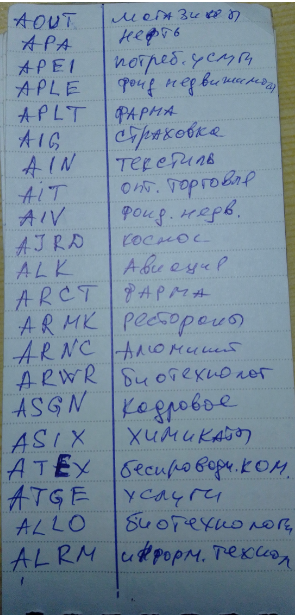 AOUT магазины
APA нефть
APEI потреб. услуги
APLE фонд недвижимос
APLT фарма
AIG страховка
AIN текстиль
AIT опт. торговля
AIV фонд. недв.
AJRD космос
ALK Авиация
ARCT фарма
ARMK рестораны
ARNC Алюминий
ARWR биотехнолог
ASGN кадровое
ASIX химикаты
ATEX беспроводн. ком.
ATGE услуги
ALLO биотехнологи
ALRM информ. технол